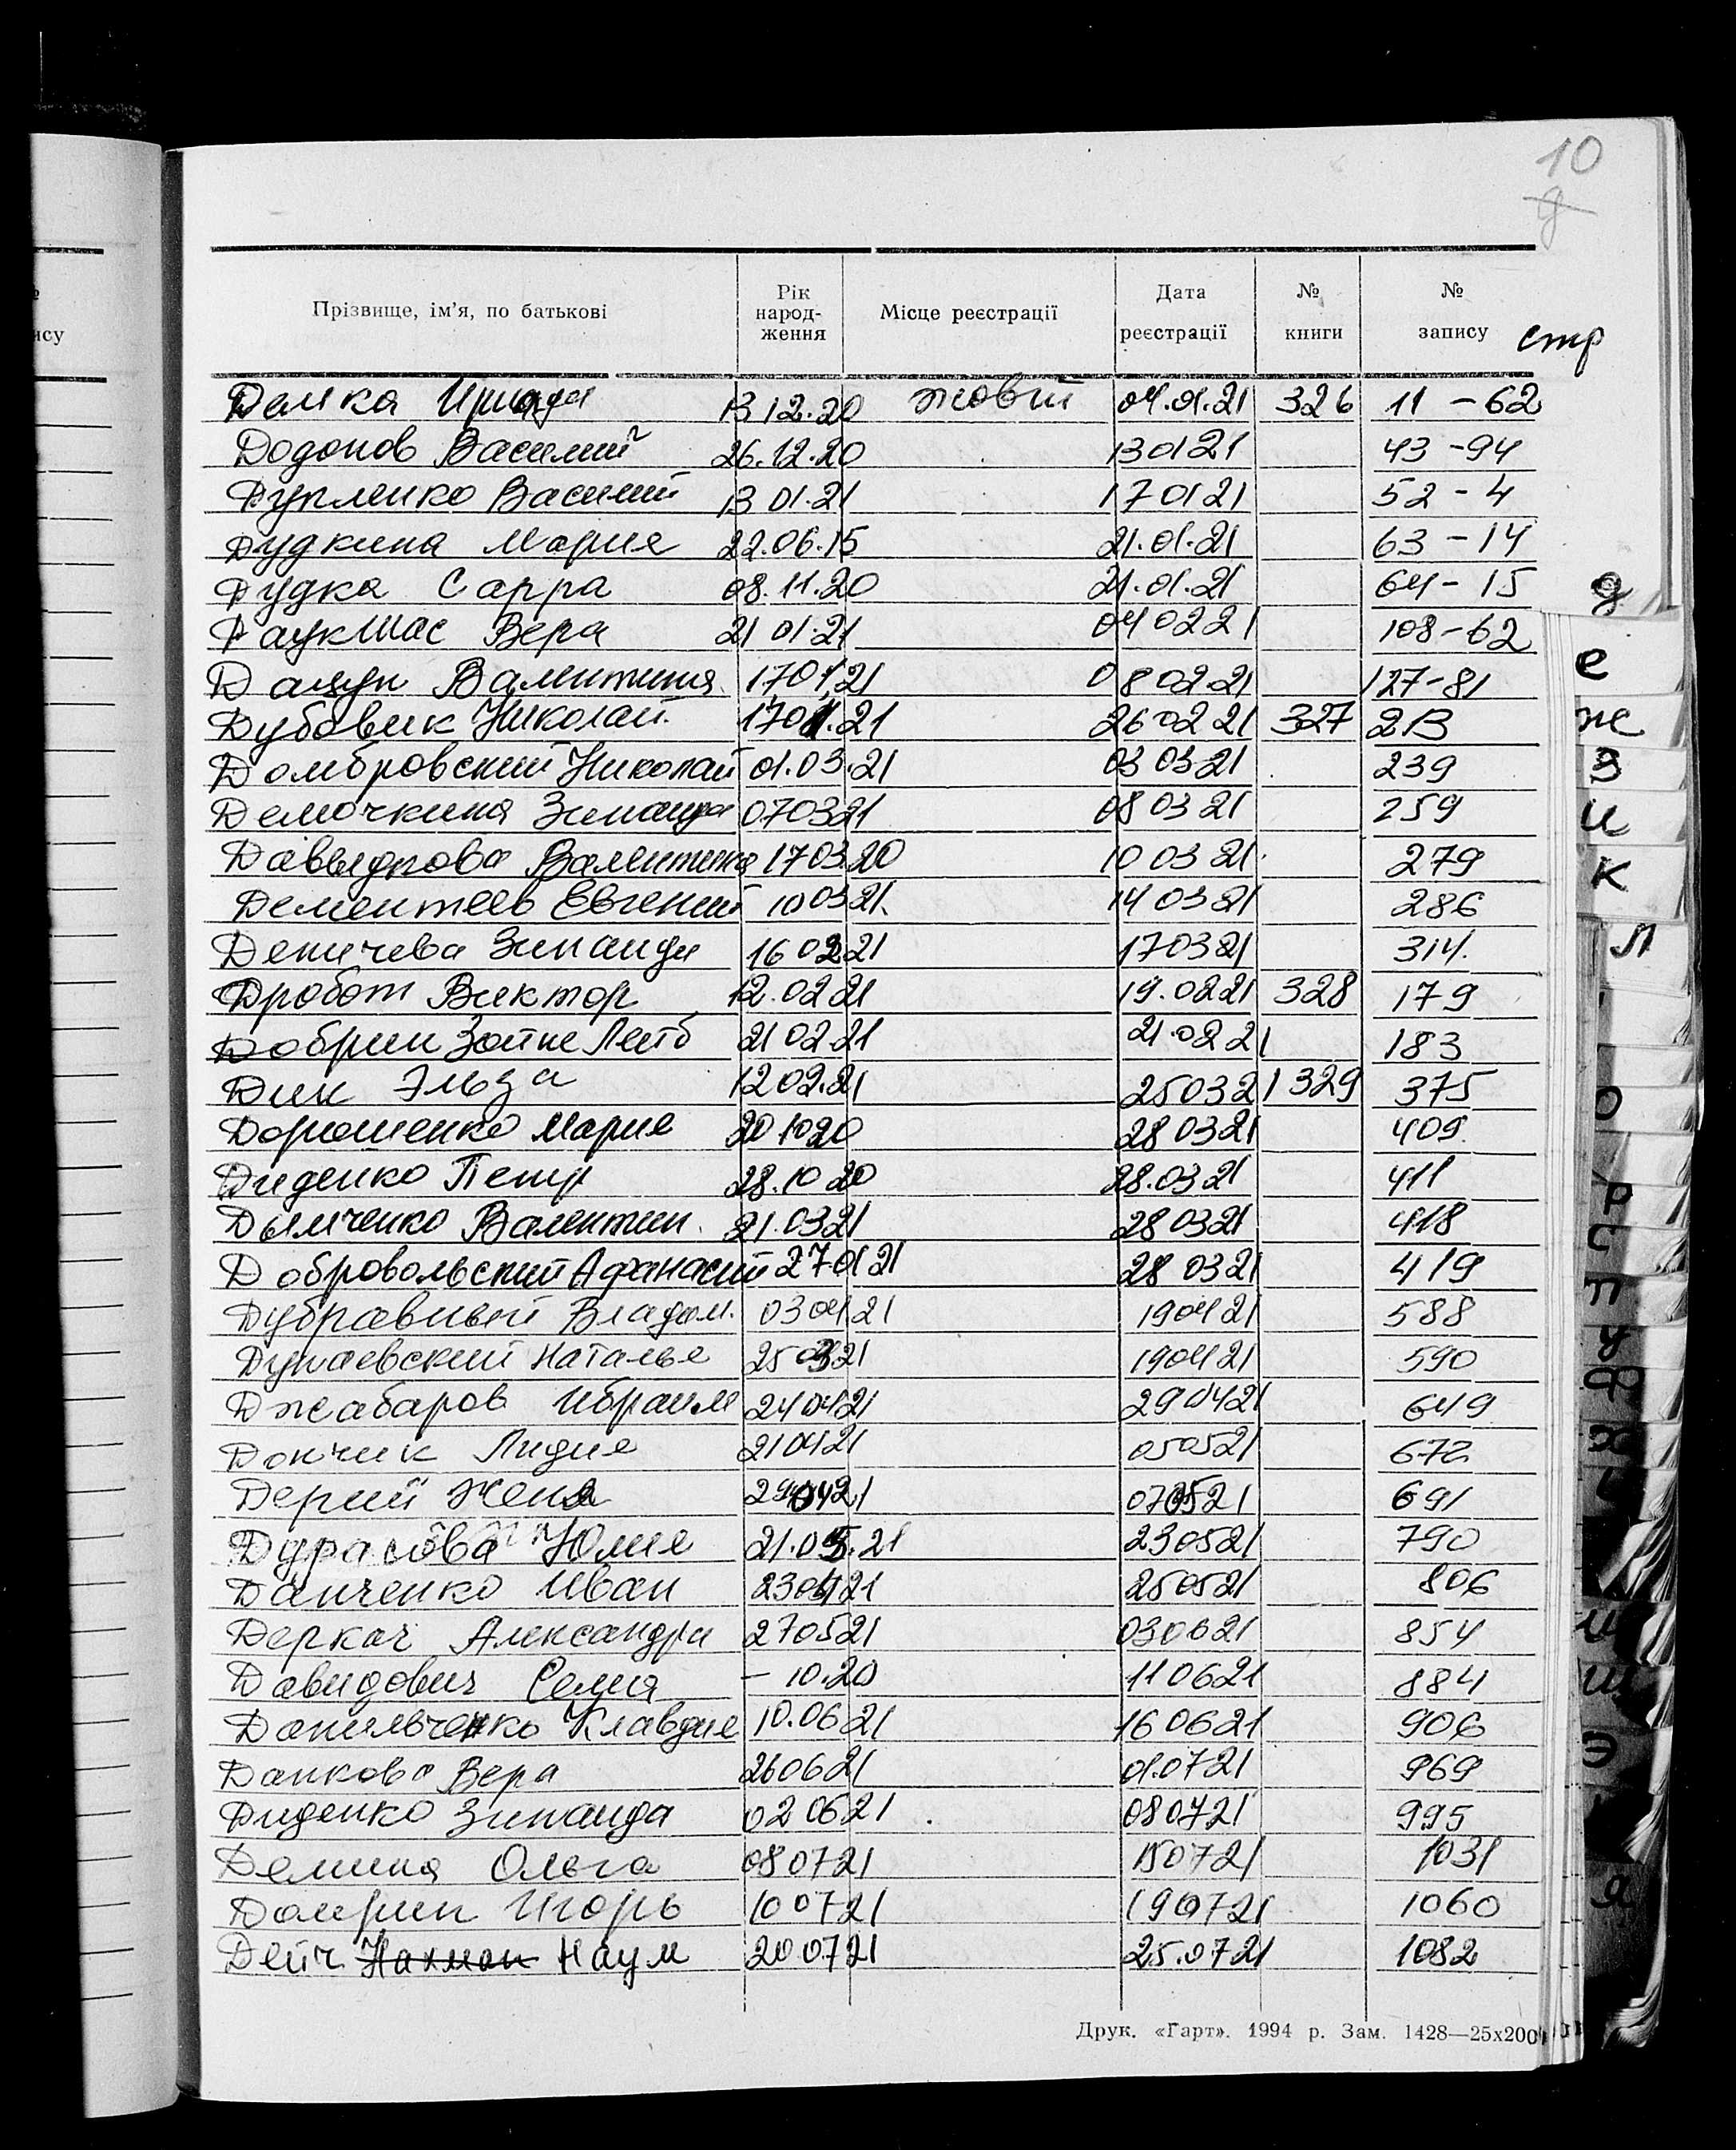 10
Прізвище, ім'я, по батькові Рік народ-ження Місце реєстрації Дата реєстрації № книги № запису стр
13 12.20 жовт 04.01.21 326 11 - 62
Додонов Василий 26.12.20 130121 43 - 94
Василий 13 01.21 170121 52 - 4
Дудкина Мария 22.06.15 21.01.21 63 - 14
Дудка Сарра 08.11.20 21.01.21 64 - 15
Даукшас Вера 21 01.21 040221 108-62
Валентина 170121 080221 127-81
Дубовик Николай 1701.21 260221 327 213
Домбровский Николай 01.03.21 030321 239
Демочкина Зинаида 070321 080321 259
Давыдкова Валентина 170320 100321 279
Дементеев Евгений 100321 140321 286
Деничева Зинаида 16 0221 170321 314
Дробот Виктор 12.0221 19.0221 328 179
Добрин 21 0221 21.0221 183
Дик Эльза 1202.21 250321 329 375
Дорошенко Мария 201020 280321 409
Диденко Петр 28.10 20 28.0321 411
Дымченко Валентин. 21.0321 280321 418
Добровольский Афанасий 270121 280321 419
Дубравный Владим. 030421 190421 588
Дунаевский Наталья 250321 190421 590
Джабаров Ибраим 240421 290421 649
Дончик Лидия 210421 050521 672
Дерий Женя 290421 070521 691
Дурасова Юлия 21.05.21 230521 790
Данченко Иван 230421 250521 806
Деркач Александра 270521 030621 854
Давидович Семия – 10.20 110621 884
Данильченко Клавдия 10.0621 160621 906
Данкова Вера 260621 01.0721 969
Диденко Зинаида 020621 080721 995
Демина Ольга 080721 150721 1031
Игорь 100721 190721 1060
Дейч Нахман Наум 200721 25.0721 1082
Друк. «Гарт». 1994 р. Зам. 1428—25х200
д
е
ж
З
и
К
Л
О
Р
С
Т
У
Ф
Х
Ш
Э
Я